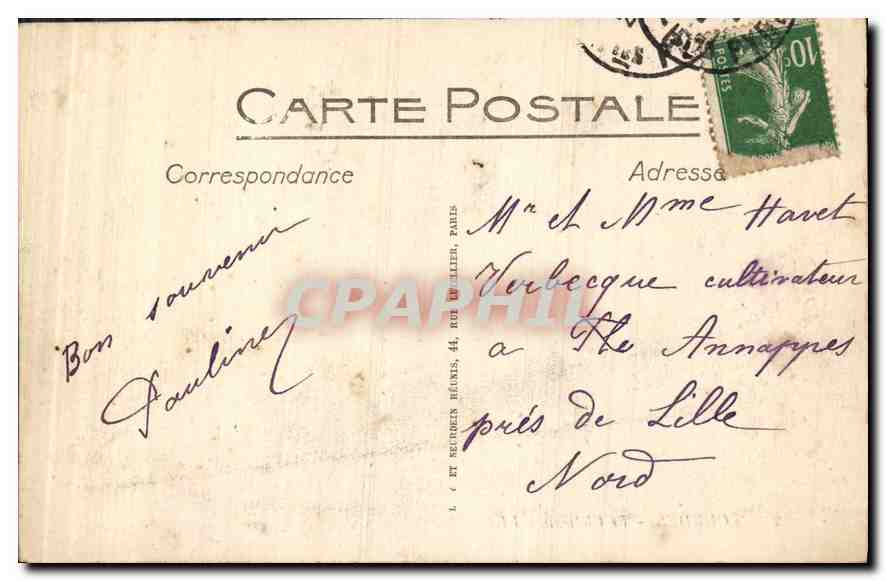 CARTE POSTALE
Correspondance
Adresse
10
POSTES
Bon souvenir
Pauline
Mr et Mme Havet
Verbecque cultivateur
a Annappes
prés de Lille
Nord
ET NEURDEIN RÉUNIS, 44, RUE LETELLIER, PARIS
CPAPHIL